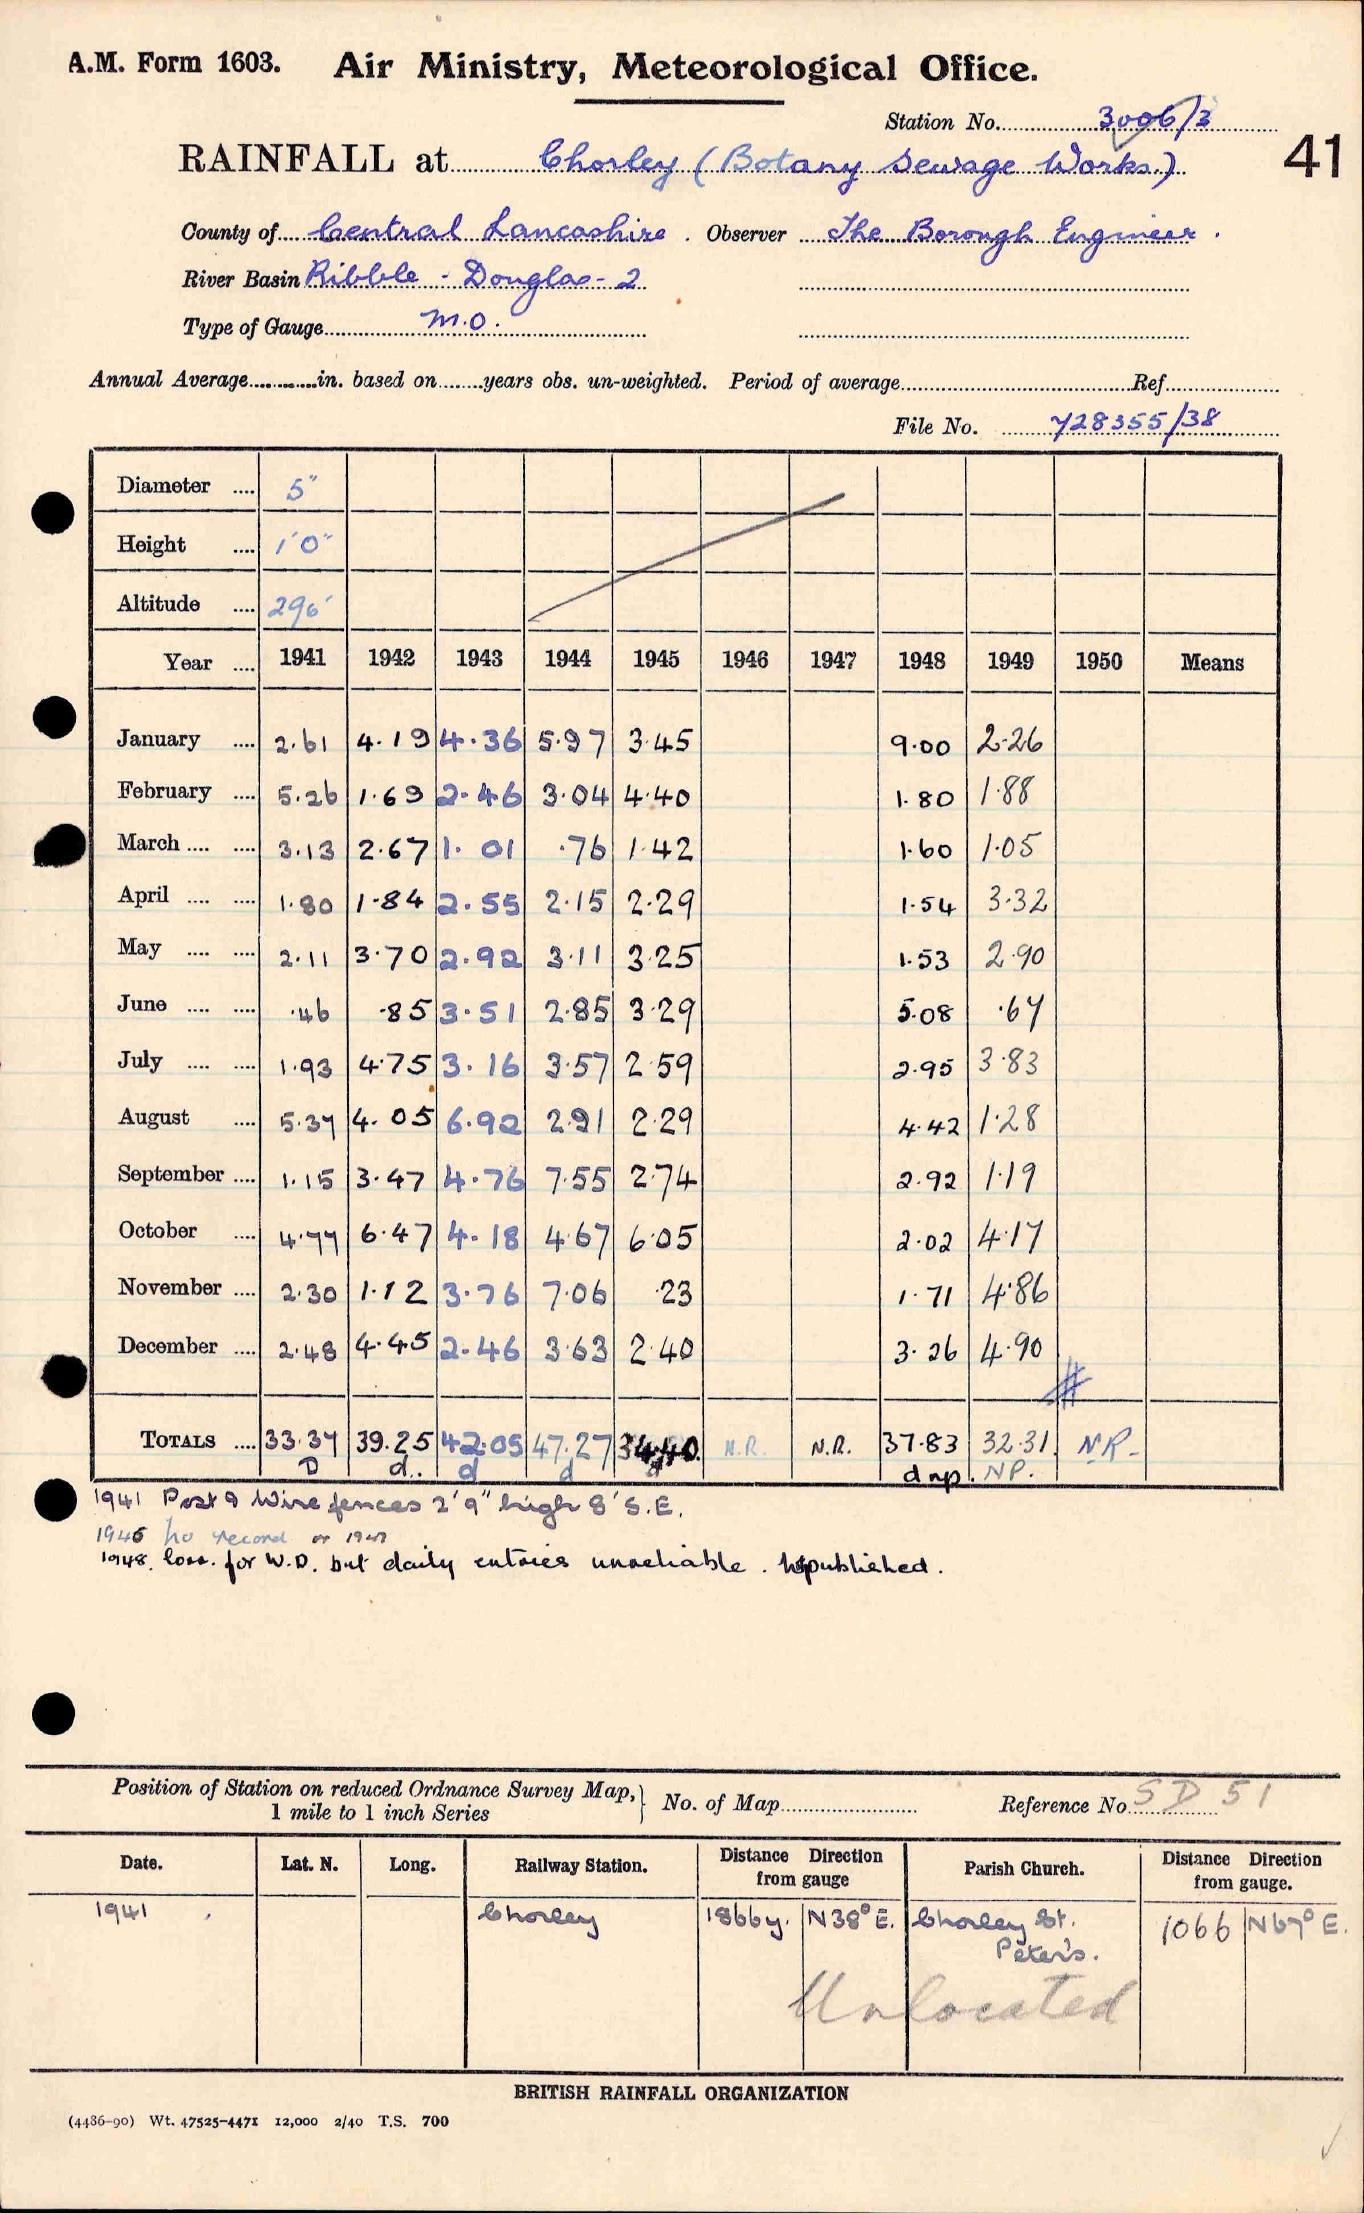 A.M. Form 1603. Air Ministry, Meteorological Office.
Station No. 3006/3
41
RAINFALL at Chorley (Botany Sewage Works.)
County of Central Lancashire. Observer The Borough Engineer.
River Basin Ribble - Douglas - 2
Type of Gauge M.O.
Annual Average............in. based on........years obs. un-weighted. Period of average Ref.
File No. 728355/38
Diameter .... 5"
Height .... 1'0"
Altitude .... 296'
Year .... 1941 1942 1943 1944 1945 1946 1947 1948 1949 1950 Means
January .... 2.61 4.19 4.36 5.97 3.45 9.00 2.26
February .... 5.26 1.69 2.46 3.04 4.40 1.80 1.88
March .... .... 3.13 2.67 1.01 .76 1.42 1.60 1.05
April .... .... 1.80 1.84 2.55 2.15 2.29 1.54 3.32
May .... .... 2.11 3.70 2.92 3.11 3.25 1.53 2.90
June .... .... .46 .85 3.51 2.85 3.29 5.08 .67
July .... .... 1.93 4.75 3.16 3.57 2.59 2.95 3.83
August .... 5.37 4.05 6.92 2.91 2.29 4.42 1.28
September .... 1.15 3.47 4.76 7.55 2.74 2.92 1.19
October .... 4.77 6.47 4.18 4.67 6.05 2.02 4.17
November .... 2.30 1.12 3.76 7.06 .23 1.71 4.86
December .... 2.48 4.45 2.46 3.63 2.40 3.26 4.90
TOTALS .... 33.37 39.25 42.05 47.27 34.40 N.R. N.R. 37.83 32.31 N.R.
D d.. d d d d np. NP.
1941 Post & Wire fences 2'9" high 8' S.E.
1946 no record or 1947
1948. for W.D. but daily entries unreliable.
Position of Station on reduced Ordnance Survey Map,} No. of Map Reference No. SD 51
1 mile to 1 inch Series
Date. Lat. N. Long. Railway Station. Distance from gauge Direction Parish Church. Distance Direction from gauge.
1941 Chorley 1866y. N38°E. Chorley St. Peter's. 1066 N67°E.
Unlocated
BRITISH RAINFALL ORGANIZATION
(4486-90) Wt. 47525-4471 12,000 2/40 T.S. 700